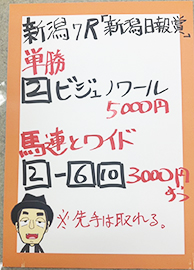 新潟7R「新潟日報賞」
単勝
2 ビジュノワール
5000円
馬連とワイド
2-6 10 3000円
ずつ
※先手は取れる。